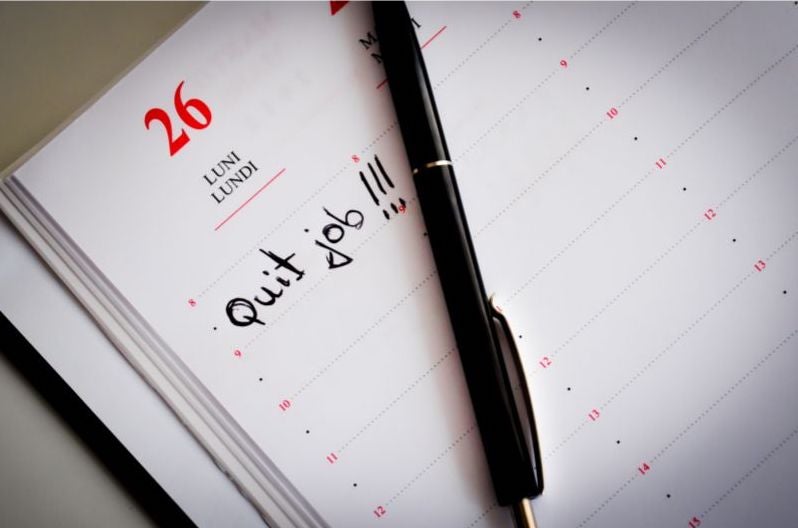 26
LUNI
LUNDI
8
Quit job !!!
9
10
11
12
8
9
8
9
10
11
12
13
12
13
14
15